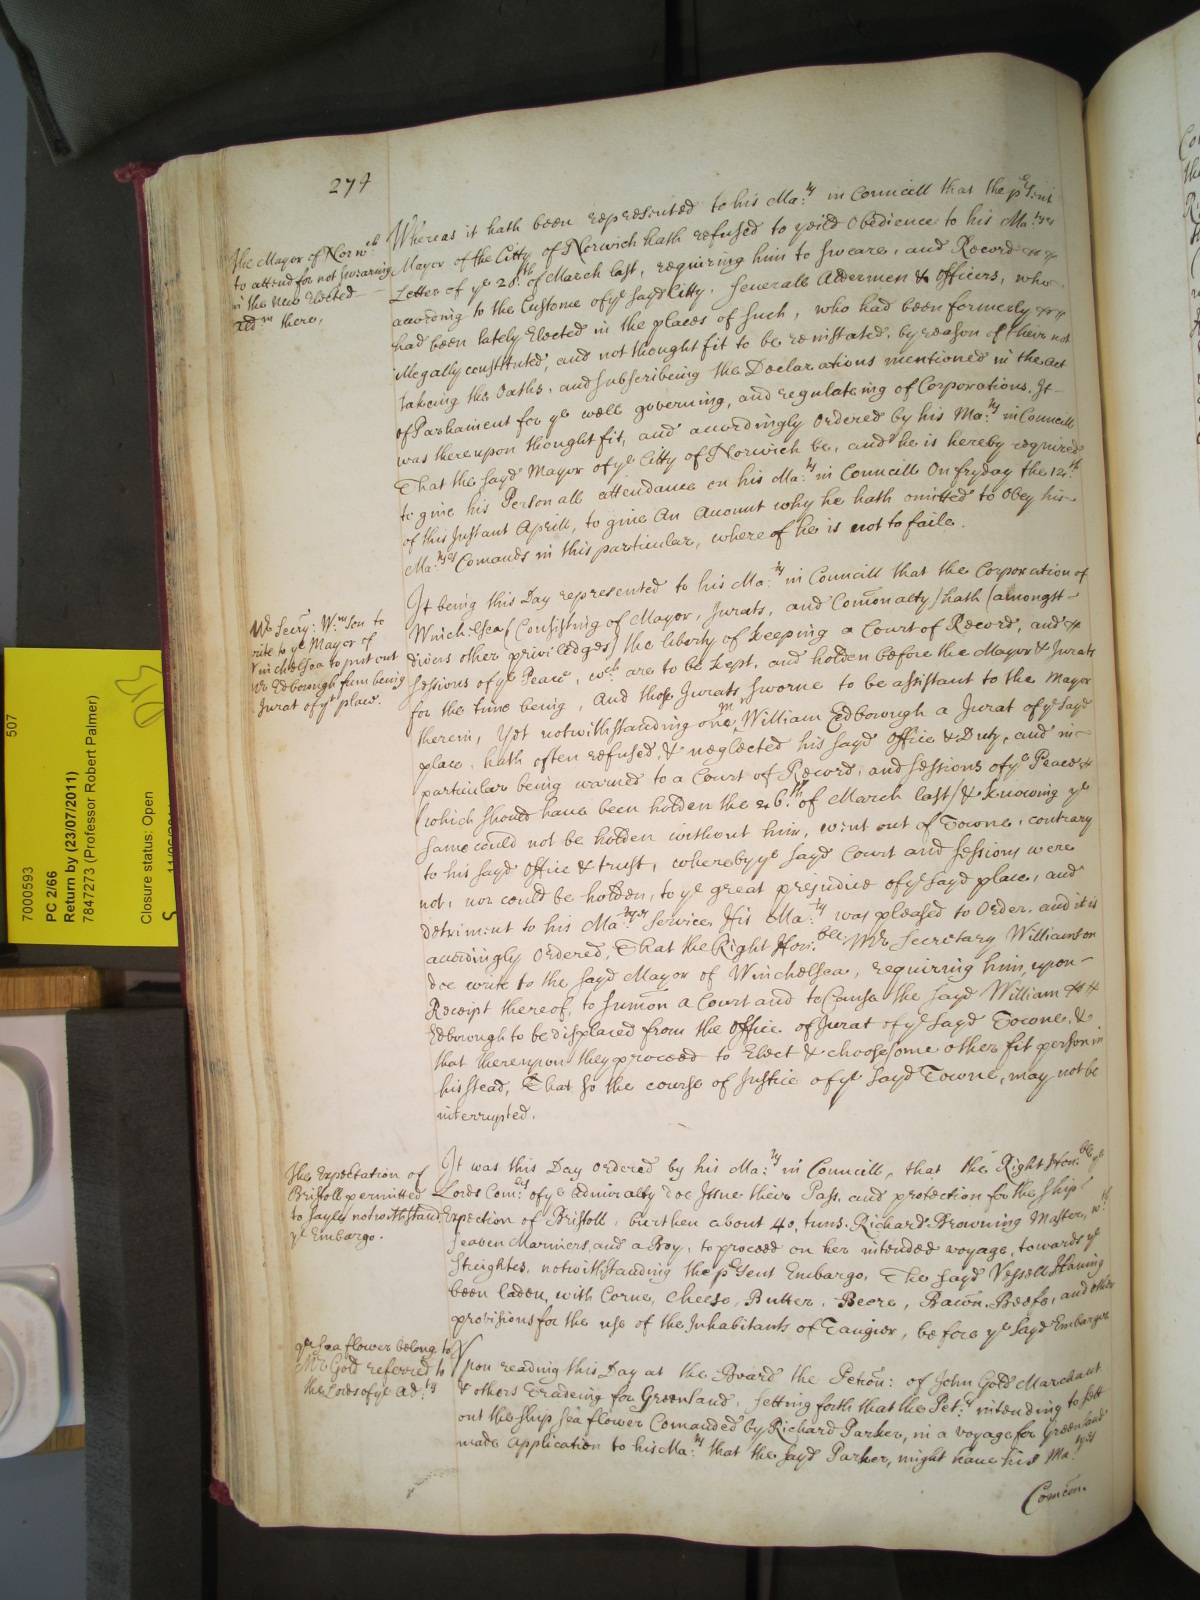 274
The Mayor of Norwch
to attend for not swearing
in the new Elected
Aldm there,
Whereas it hath been represented to his Ma:ty in Councill that the pƐsent
Mayor of the Citty of Norwich hath refused to yeild Obedience to his Ma:tyes
Letter of ye 28th of March last, requiring him to sweare, and Record
according to the Custome of ye sayd Citty, severall Aldermen & Officers, who
had been lately Elected in the places of such, who had been formerly
illegally constituted, and not thought fit to be reinstated, by reason of their not
takeing the Oaths, and subscribeing the Declarations mentioned in the Act
of Parliament for ye well governing, and regulateing of Corporations. It
was thereupon thought fit, and accordingly Ordered by his Ma:ty in Councill
That the sayd Mayor of ye Citty of Norwich be, and he is hereby required
to give his Personall attendance on his Ma:ty in Councill On fryday the 12th
of this Instant Aprill, to give An Account why he hath omitted to Obey his
Ma:tyes Comands in this particular, whereof he is not to faile.
Mr Secry: Wmson to
write to ye Mayor of
Winchelsea to put out
Mr Edborough from being
Jurat of yt place.
It being this Day represented to his Ma:ty in Councill that the Corporation of
Winchelsea (Consisting of Mayor, Jurats, and Comonalty) hath (amongst
divers other priviledges) the liberty of keeping a Court of Record, and
Sessions of ye Peace, wch are to be kept, and holden before the Mayor & Jurats
for the time being, And those Jurats sworne to be assistant to the Mayor
therein, Yet notwithstanding one Mr William Edborough a Jurat of ye sayd
place, hath often refused, & neglected his sayd Office & Duty, and in
particular being warned to a Court of Record, and Sessions of ye Peace
(which should have been holden the 26th of March last) & knowing ye
same could not be holden without him, went out of Towne, contrary
to his sayd Office & trust, whereby ye sayd Court and Sessions were
not, nor could be holden, to ye great prejudice of ye sayd place, and
detriment to his Ma:tyes Service, His Ma:ty was pleased to Order, and it is
accordingly Ordered, That the Right Hon:ble Mr Secretary Williamson
doe write to the sayd Mayor of Winchelsea, requiring him, upon
Receipt thereof, to sumon a Court and to Cause the sayd William
Edborough to be displaced from the Office of Jurat of ye sayd Towne, &
that thereupon they proceed to Elect & choose some other fit person in
his stead, That so the course of Justice of ye sayd Towne, may not be
interrupted.
The Expectation of
Bristoll permitted
to sayle notwithstand
ye Embargo.
It was this Day Ordered by his Ma:ty in Councill, that the Right Hon:ble ye
Lords Com:rs of ye Admiralty doe Issue their Pass, and protection for the ship
Expection of Bristoll, burthen about 40, tuns, Richard Browning Master, wth
Seaven Mariners, and a Boy, to proceed on her intended voyage, towards ye
Streights, notwithstanding the pƐsent Embargo, The sayd Vessell Having
been laden, with Corne, Cheese, Butter, Beere, Bacon, Beefe, and other
provisions for the use of the Inhabitants of Tangier, before ye sayd Embargo
ye Sea flower belong to
Mr Gold referred to
the Lords of ye Ad:ty
Upon reading this Day at the Board the Peticon: of John Gold Marchant
& others Tradeing for Greenland, setting forth that the Pet:rs intending to sett
out the ship Sea flower Comanded by Richard Parker, in a voyage for Greenland
made Application to his Ma:ty that the sayd Parker, might have his Ma:tyes
Comcon.
507
7000593
PC 2/66
Return by (23/07/2011)
7847273 (Professor Robert Palmer)
Closure status: Open